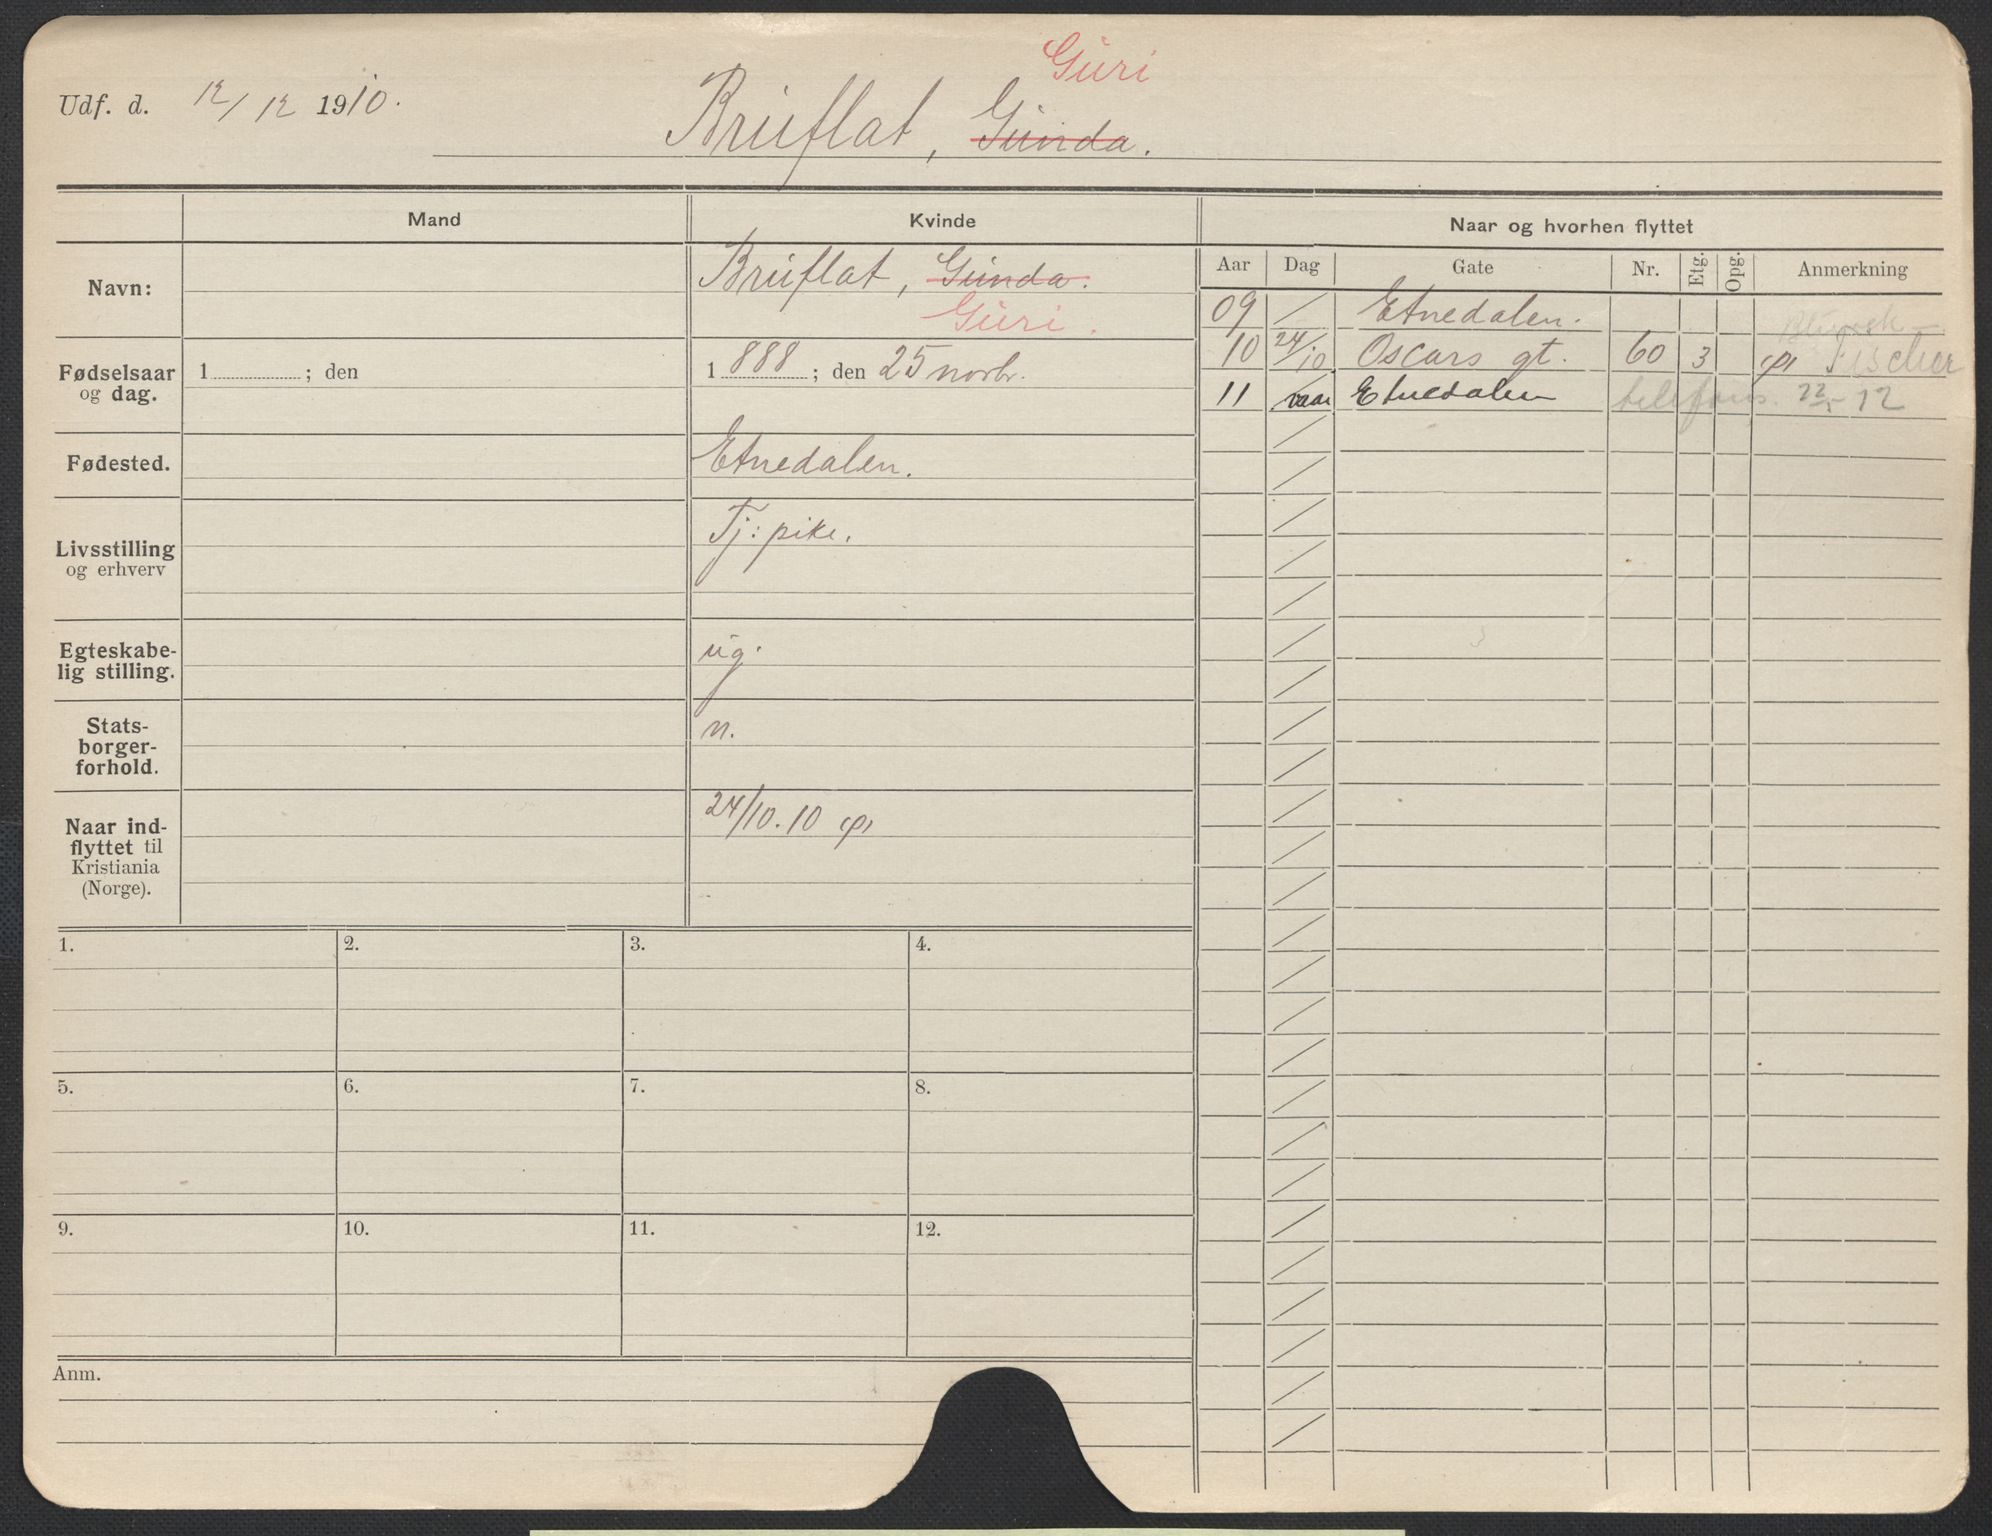 Udf. d. 12/12 1910.
Guri
Bruflat, Gunda.
Mand
Kvinde
Naar og hvorhen flyttet
Navn:
Bruflat, Gunda.
Guri.
Fødselsaar og dag.
1 ; den
1888 ; den 25 novbr.
Fødested.
Etnedalen.
Livsstilling og erhverv
Tj: pike.
Egteskabe-
lig stilling.
ug.
Stats-
borger-
forhold.
n.
Naar ind-
flyttet til
Kristiania
(Norge).
24/10.10
Aar Dag Gate Nr. Etg. Opg. Anmerkning
09 / Etnedalen.
10 24/10 Oscars gt. 60 3 Fischer
11 vaar Etnedalen telefons. 12
1. 2. 3. 4.
5. 6. 7. 8.
9. 10. 11. 12.
Anm.